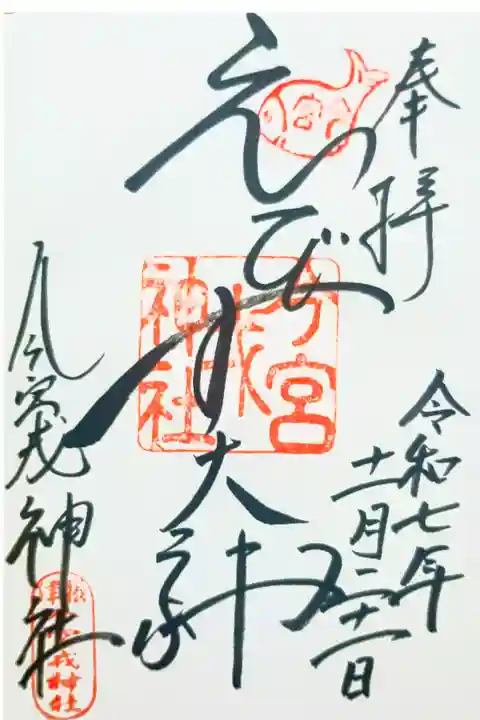 奉拝
令和七年
十一月二十一日
えびす大神
今宮
戎
神社
今宮戎神社